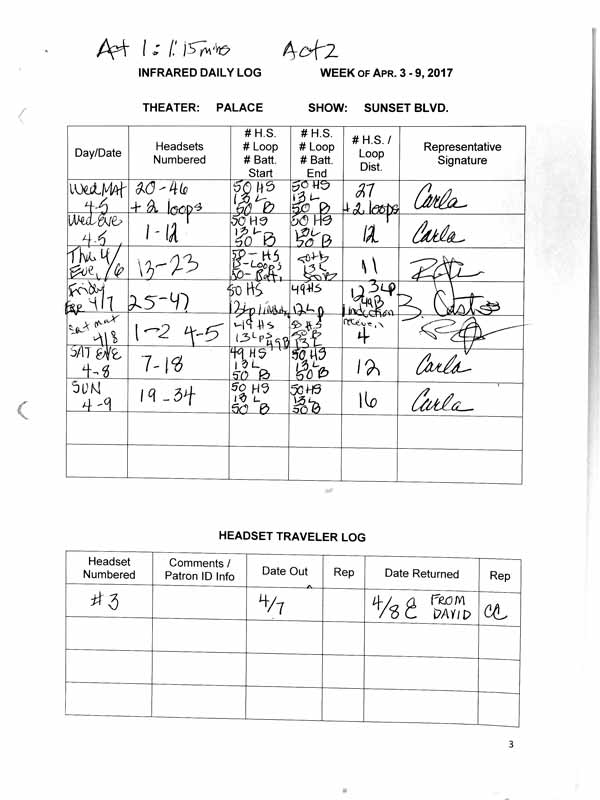 Act 1: 1:15 mins Act 2
INFRARED DAILY LOG WEEK OF APR. 3 - 9, 2017
THEATER: PALACE SHOW: SUNSET BLVD.
Day/Date Headsets Numbered # H.S. # Loop # Batt. Start # H.S. # Loop # Batt. End # H.S. / Loop Dist. Representative Signature
Wed MAT 4.5 20-46 + 2 loops 50 HS 13 L 50 B 50 HS 13 L 50 B 27 + 2 loops Carla
Wed Eve 4.5 1-12 50 HS 13 L 50 B 50 HS 13 L 50 B 12 Carla
Thu 4/6 Eve. 13-23 50-HS 13-Loops 50-Batt. 13L 50B 11
Friday Eve 4/7 25-47 50 HS 49HS 12 Lp
Sat mat 4/8 1-2 4-5 49 HS 13 Lps 49B 50 HS 50B 13L 4
SAT EVE 4-8 7-18 49 HS 13L 50 B 50 HS 13L 50 B 12 Carla
SUN 4-9 19-34 50 HS 13 L 50 B 50 HS 13L 50B 16 Carla
HEADSET TRAVELER LOG
Headset Numbered Comments / Patron ID Info Date Out Rep Date Returned Rep
#3 4/7 4/8 E FROM DAVID CC
3